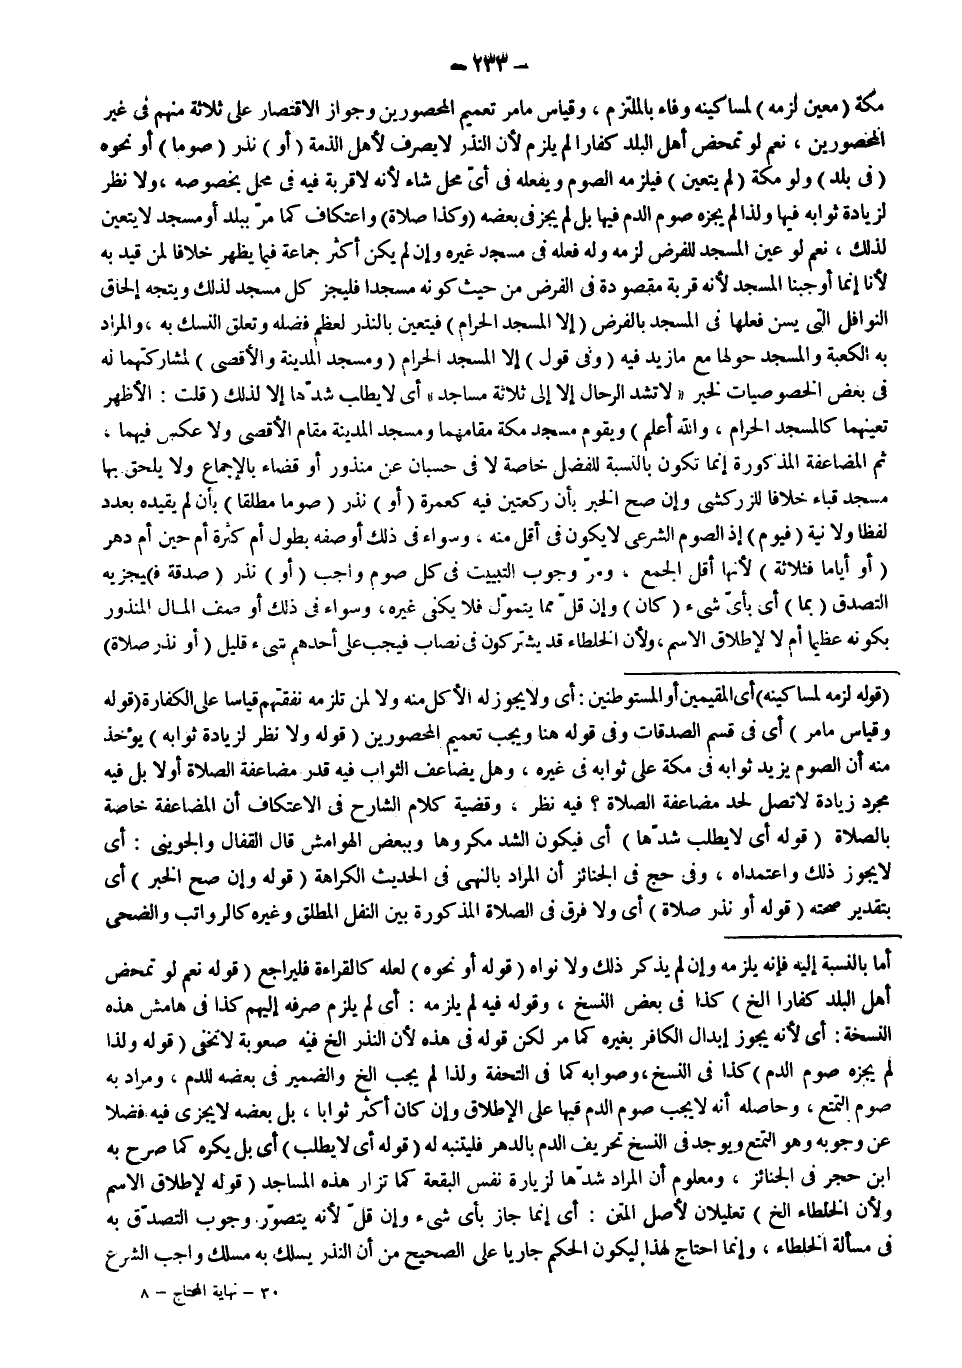 - ٢٣٣ -
مكة ( معين لزمه ) لمساكينه وفاء بالملتزم ، وقياس مامر تعميم المحصورين وجواز الاقتصار على ثلاثة منهم فى غير
المحصورين ، نعم لو تمحض أهل البلد كفارا لم يلزم لأن النذر لايصرف لأهل الذمة ( أو ) نذر ( صوما ) أو نحوه
( فى بلد ) ولو مكة ( لم يتعين ) فيلزمه الصوم ويفعله فى أىّ محل شاء لأنه لاقربة فيه فى محل بخصوصه ، ولا نظر
لزيادة ثوابه فيها ولذا لم يجزه صوم الدم فيها بل لم يجزئ بعضه (وكذا صلاة) واعتكاف كما مرّ ببلد أو مسجد لايتعين
لذلك ، نعم لو عين المسجد للفرض لزمه وله فعله فى مسجد غيره وإن لم يكن أكثر جماعة فيما يظهر خلافا لمن قيد به
لأنا إنما أوجبنا المسجد لأنه قربة مقصودة فى الفرض من حيث كونه مسجدا فليجز كل مسجد لذلك ويتجه إلحاق
النوافل التى يسن فعلها فى المسجد بالفرض ( إلا المسجد الحرام ) فيتعين بالنذر لعظم فضله وتعلق النسك به ، والمراد
به الكعبة والمسجد حولها مع مازيد فيه ( وفى قول ) إلا المسجد الحرام ( ومسجد المدينة والأقصى ) لمشاركتهما له
فى بعض الخصوصيات لخبر « لاتشد الرحال إلا إلى ثلاثة مساجد » أى لايطلب شدّها إلا لذلك ( قلت : الأظهر
تعينهما كالمسجد الحرام ، والله أعلم ) ويقوم مسجد مكة مقامهما ومسجد المدينة مقام الأقصى ولا عكس فيهما ،
ثم المضاعفة المذكورة إنما تكون بالنسبة للفضل خاصة لا فى حسبان عن منذور أو قضاء بالإجماع ولا يلحق بها
مسجد قباء خلافا للزركشى وإن صح الخبر بأن ركعتين فيه كعمرة ( أو ) نذر ( صوما مطلقا ) بأن لم يقيده بعدد
لفظا ولا نية ( فيوم ) إذ الصوم الشرعى لايكون فى أقل منه ، وسواء فى ذلك أوصفه بطول أم كثرة أم حين أم دهر
( أو أياما فثلاثة ) لأنها أقل الجمع ، ومرّ وجوب التبييت فى كل صوم واجب ( أو ) نذر ( صدقة ف)يجزيه
التصدق ( بما ) أى بأىّ شىء ( كان ) وإن قلّ مما يتموّل فلا يكفى غيره، وسواء فى ذلك أو صف المال المنذور
بكونه عظيما أم لا لإطلاق الاسم ، ولأن الخلطاء قد يشتركون فى نصاب فيجب على أحدهم شىء قليل ( أو نذر صلاة)
(قوله لزمه لمساكينه) أى المقيمين أو المستوطنين : أى ولا يجوز له الأكل منه ولا لمن تلزمه نفقتهم قياسا على الكفارة (قوله
وقياس مامر ) أى فى قسم الصدقات وفى قوله هنا ويجب تعميم المحصورين ( قوله ولا نظر لزيادة ثوابه ) يؤخذ
منه أن الصوم يزيد ثوابه فى مكة على ثوابه فى غيره ، وهل يضاعف الثواب فيه قدر مضاعفة الصلاة أولا بل فيه
مجرد زيادة لاتصل لحد مضاعفة الصلاة ؟ فيه نظر ، وقضية كلام الشارح فى الاعتكاف أن المضاعفة خاصة
بالصلاة ( قوله أى لايطلب شدّها ) أى فيكون الشد مكروها وببعض الهوامش قال القفال والجوينى : أى
لايجوز ذلك واعتمداه ، وفى حج فى الجنائز أن المراد بالنهى فى الحديث الكراهة ( قوله وإن صح الخبر ) أى
بتقدير صحته ( قوله أو نذر صلاة ) أى ولا فرق فى الصلاة المذكورة بين النفل المطلق وغيره كالرواتب والضحى
أما بالنسبة إليه فإنه يلزمه وإن لم يذكر ذلك ولا نواه ( قوله أو نحوه ) لعله كالقراءة فليراجع ( قوله نعم لو تمحض
أهل البلد كفارا الخ ) كذا فى بعض النسخ ، وقوله فيه لم يلزمه : أى لم يلزم صرفه إليهم كذا فى هامش هذه
النسخة : أى لأنه يجوز إبدال الكافر بغيره كما مر لكن قوله فى هذه لأن النذر الخ فيه صعوبة لاتخفى ( قوله ولذا
لم يجزه صوم الدم ) كذا فى النسخ ، وصوابه كما فى التحفة ولذا لم يجب الخ والضمير فى بعضه للدم ، ومراد به
صوم التمتع ، وحاصله أنه لايجب صوم الدم فيها على الإطلاق وإن كان أكثر ثوابا ، بل بعضه لايجزى فيه فضلا
عن وجوبه وهو التمتع ويوجد فى النسخ تحريف الدم بالدهر فليتنبه له ( قوله أى لايطلب ) أى بل يكره كما صرح به
ابن حجر فى الجنائز ، ومعلوم أن المراد شدّها لزيارة نفس البقعة كما تزار هذه المساجد ( قوله لإطلاق الاسم
ولأن الخلطاء الخ ) تعليلان لأصل المتن : أى إنما جاز بأى شىء وإن قلّ لأنه يتصوّر وجوب التصدّق به
فى مسألة الخلطاء ، وإنما احتاج لهذا ليكون الحكم جاريا على الصحيح من أن النذر يسلك به مسلك واجب الشرع
٣٠ - نهاية المحتاج - ٨